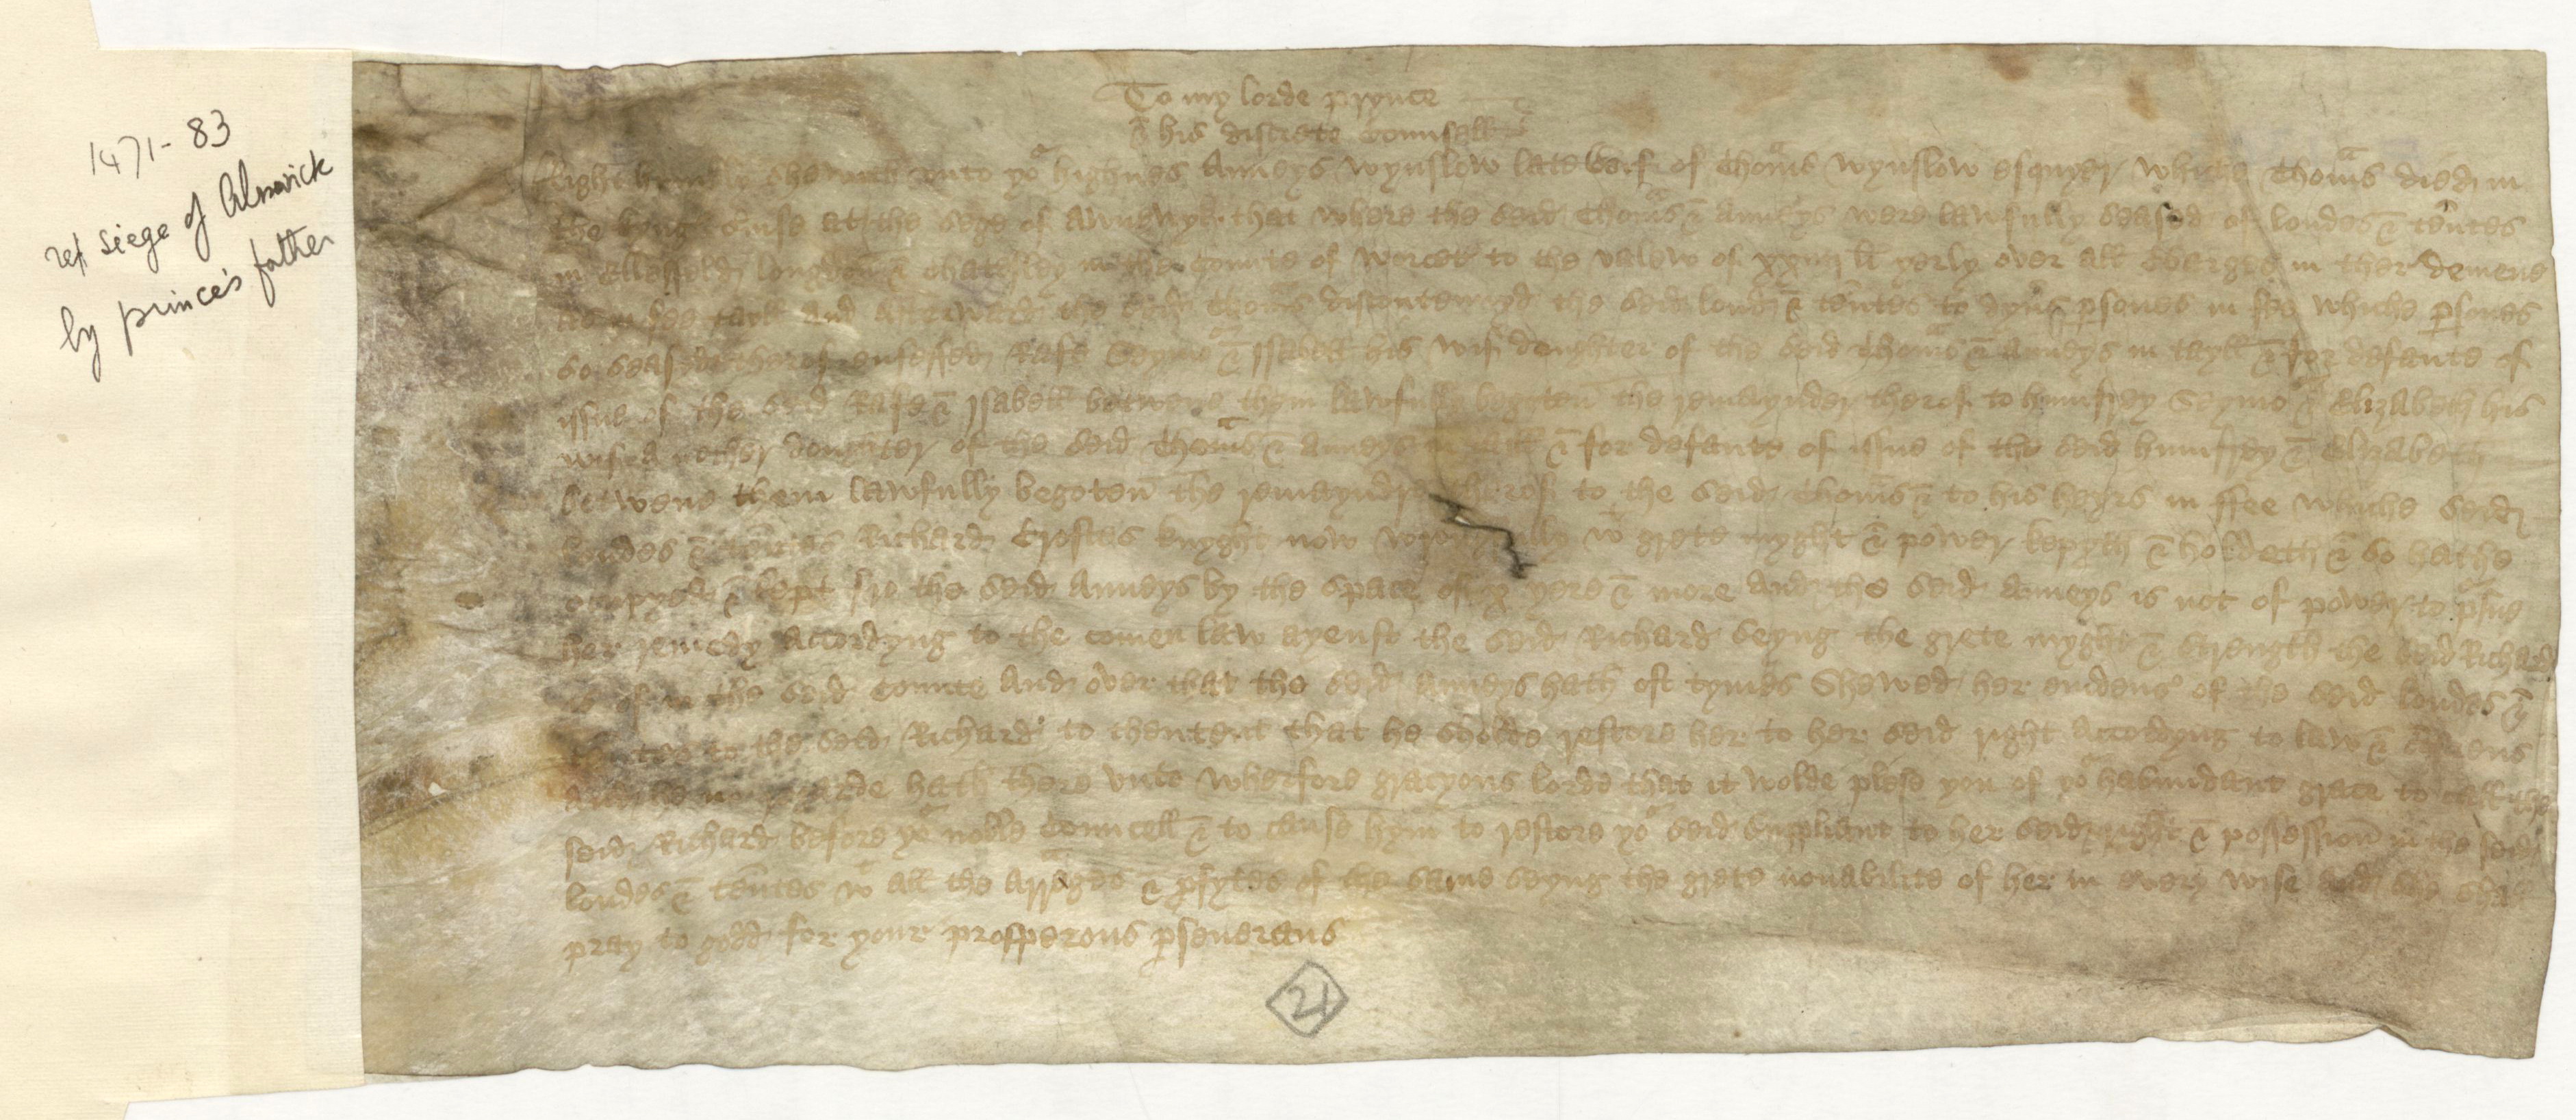 1471-83
ref. siege of Alnwick
by prince's father
To my lorde prynce
& his discrete Counsall
Right sheweth unto yor highnes Anneys Wynslow late Wif of Thomas Wynslow esquyer whiche Thomas died in
the kyng at the sege of that where the seid Thomas & Anneys were lawfully seased of londes & tentes
in & in the Counte of Worcet to the valew of li yerly over all charges in ther demene
as in fee tayll and afterward the seid Thomas the seid londes & tentes to dyvers persones in fee whiche persones
so seased therof enfeffed Rafe Seymor & Isabell his wif doughter of the seid Thomas & Anneys in tayll & for defaute of
issue of the seid Rafe & Isabell betwene them lawfully begoten the remaynder therof to Humfrey Seymor & Elizabeth his
wif a nother doughter of the seid Thomas & Anneys in taill & for defaute of issue of the seid Humfrey & Elizabeth
betwene them lawfully begoten the remayndre therof to the seid Thomas & to his heyrs in ffee whiche seid
londes & tentes Richard Croftes knyght now wt grete myght & power kepyth & holdeth & so hathe
occupyed & kept fro the seid Anneys by the space of yere & more and the seid Anneys is not of power to pursue
her remedy accordyng to the comen law ayenst the seid Richard seyng the grete myght & strength the seid Richard
is of in the seid Counte And over that the seid Anneys hath oft tymes Shewed her evidens of the seid londes &
tentes to the seid Richard to thentent that he sholde restore her to her seid right accordyng to law &
and he no regarde hath there unto Wherfore gracyous lorde that it wolde plese you of yor habundant grace to call the
seid Richard before yor noble Councell & to cause hym to restore yor seid suppliant to her seid right & possession in the seid
londes & tentes wt all the & profytes of the same seyng the grete nonabilite of her in every wise and she shall
pray to godd for your prosperous
21